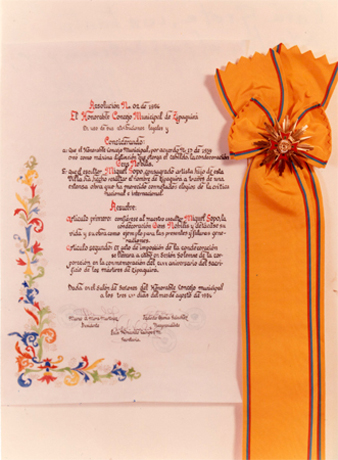 Resolución N. 02 de 1984
El Honorable Concejo Municipal de Zipaquirá
En uso de sus atribuciones legales y
Considerando:
a: que el Honorable Concejo Municipal, por acuerdo N. 17 de 1979
creó como máxima distinción que otorga el cabildo, la condecoración
Gens Nobilis.
b: que el escultor Miguel Sopó, consagrado artista hijo de esta
Villa ha hecho resaltar el nombre de Zipaquirá a través de una
extensa obra que ha merecido connotados elogios de la crítica
nacional e internacional.
Resuelve:
Artículo primero: confiérase al maestro escultor Miguel Sopó, la
condecoración Gens Nobilis y destacar su
vida y su obra como ejemplo para las presentes y futuras gene-
raciones.
Artículo segundo: El acto de imposición de la condecoración
se llevará a cabo en Sesión Solemne de la cor-
poración en la conmemoración del aniversario del sacri-
ficio de los mártires de Zipaquirá.
Dada en el salón de sesiones del Honorable Concejo municipal
a los tres días del mes de agosto de 1984
Presidente Vicepresidente
Secretaria